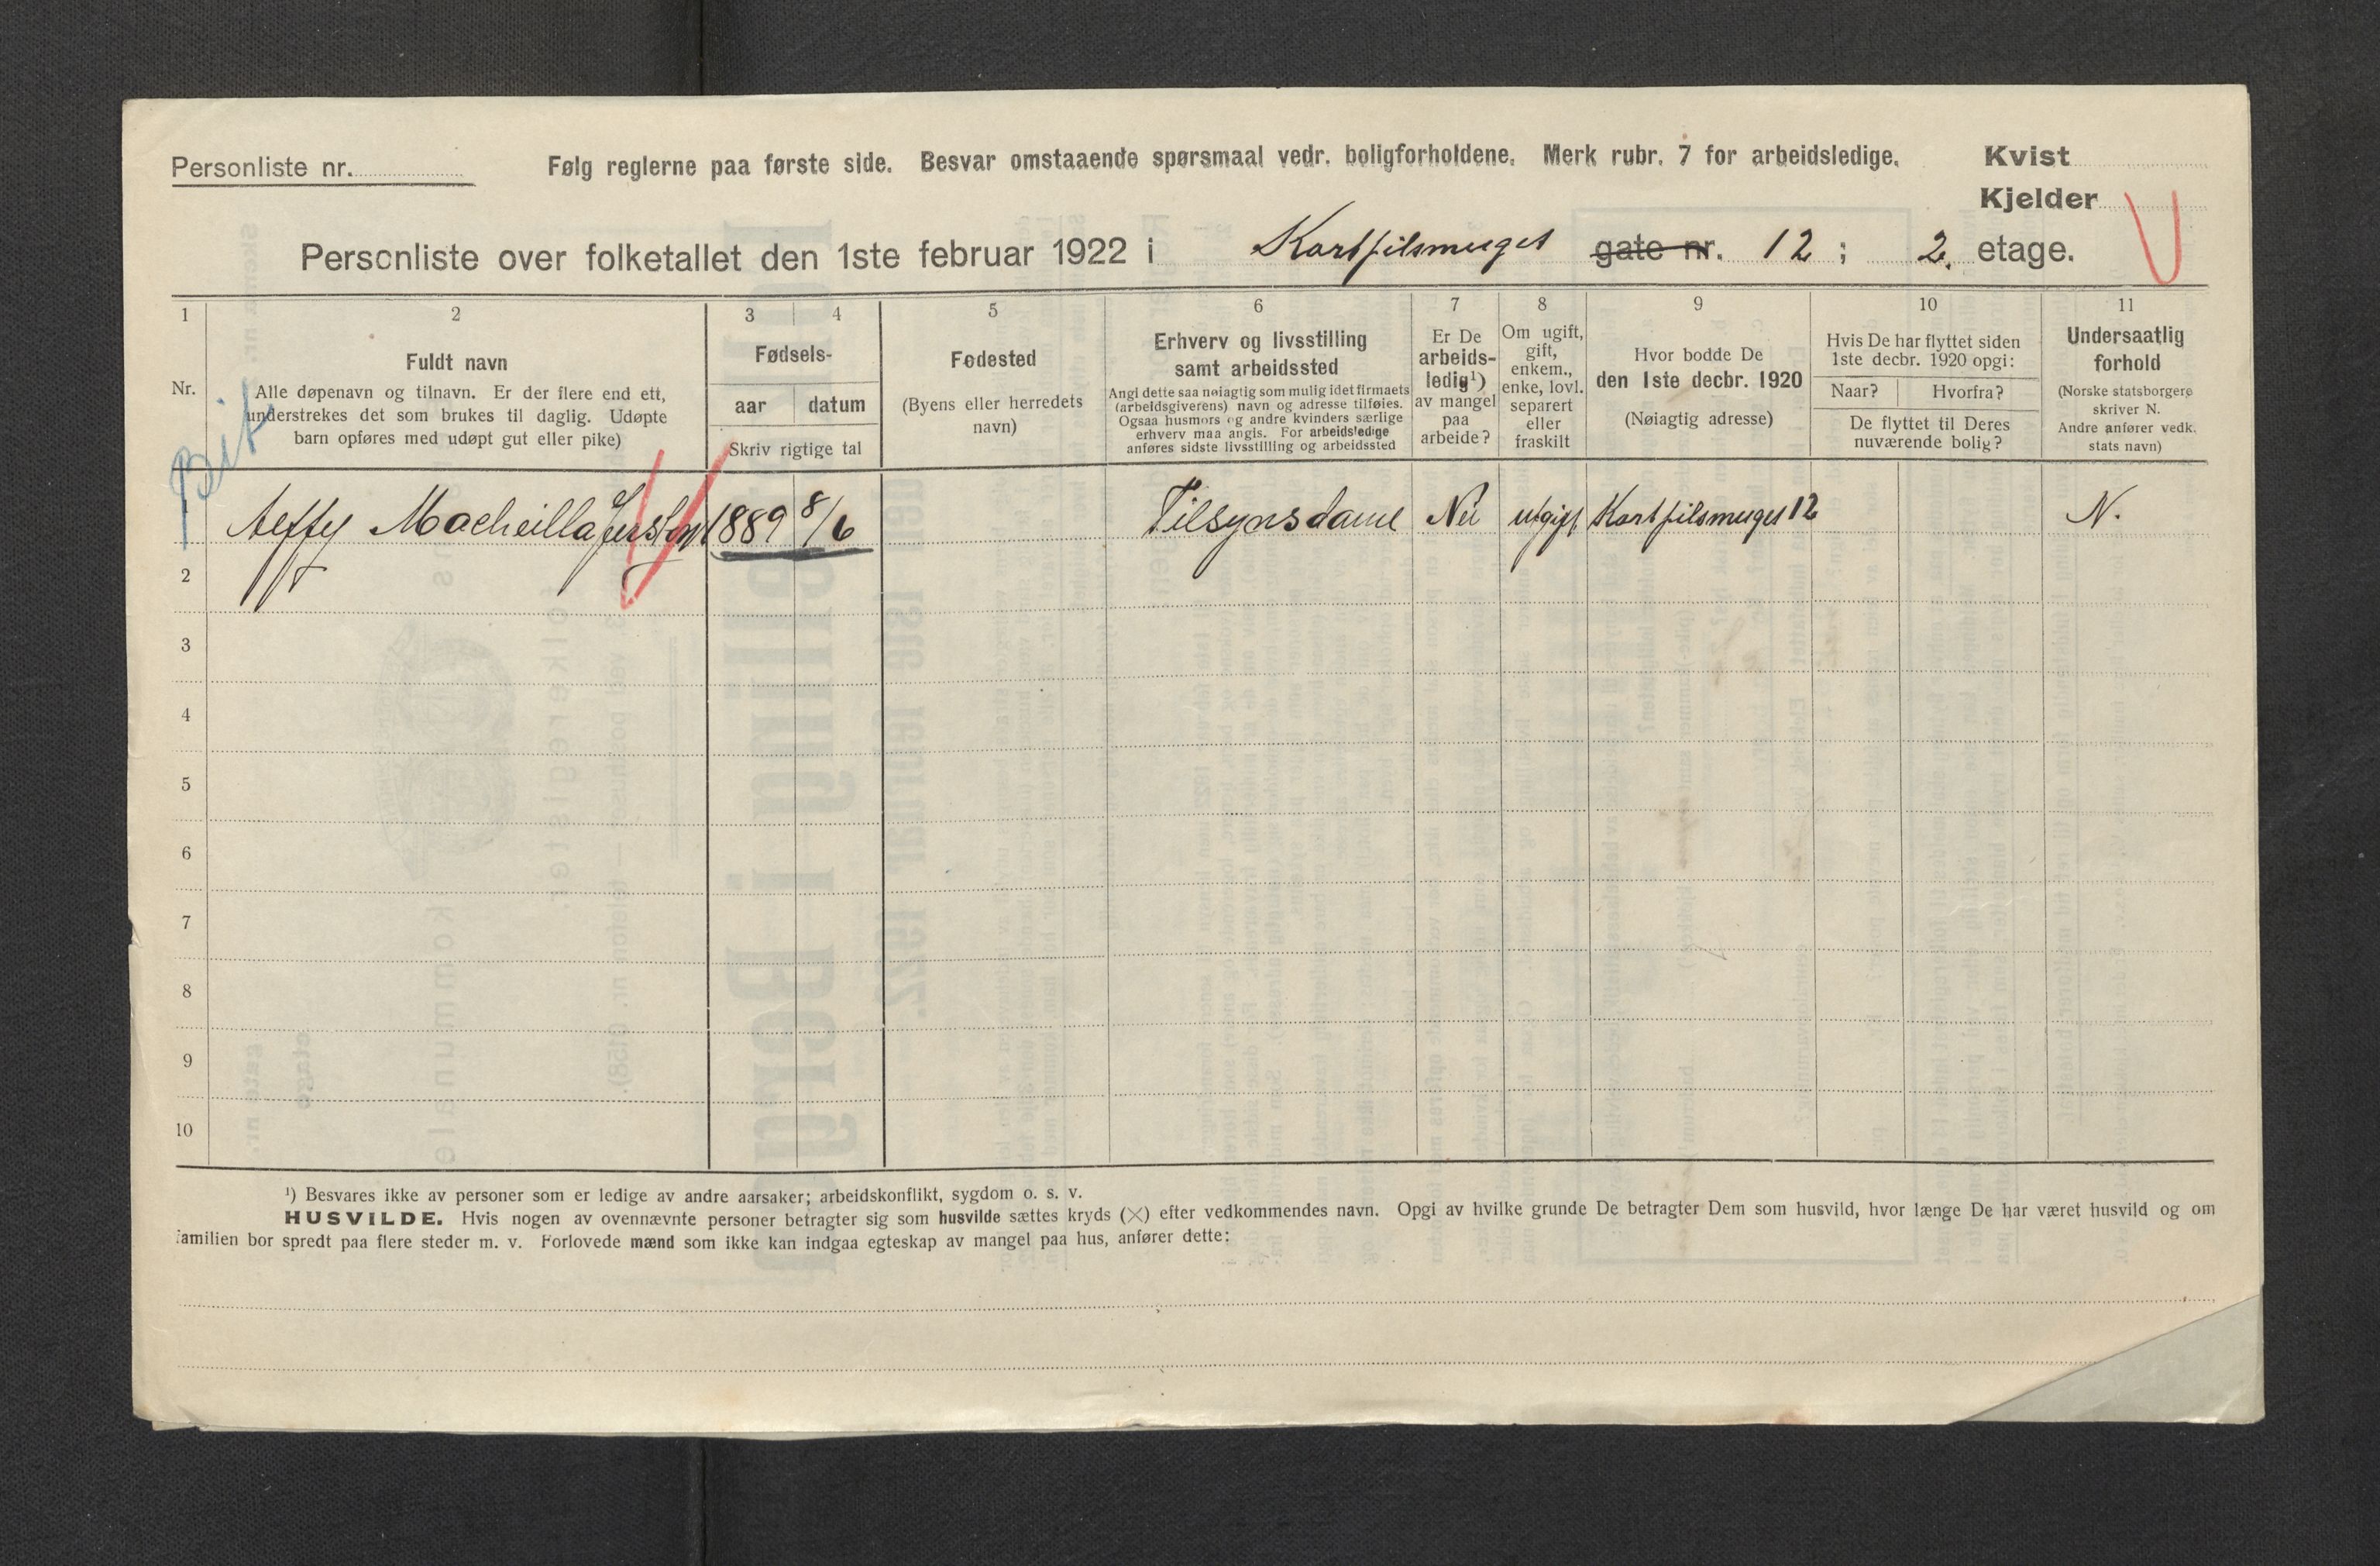 Personliste nr.
Følg reglerne paa første side. Besvar omstaaende spørsmaal vedr. boligforholdene. Merk rubr. 7 for arbeidsledige.
Kvist
Kjelder
Personliste over folketallet den 1ste februar 1922 i Kortpilsmuget gate nr. 12 ; 2. etage.
1 2 3 4 5 6 7 8 9 10 11
Nr.
Fuldt navn
Alle døpenavn og tilnavn. Er der flere end ett,
understrekes det som brukes til daglig. Udøpte
barn opføres med udøpt gut eller pike)
Fødsels-
aar datum
Skriv rigtige tal
Fødested
(Byens eller herredets
navn)
Erhverv og livsstilling
samt arbeidssted
Angi dette saa nøiagtig som mulig idet firmaets
(arbeidsgiverens) navn og adresse tilføies.
Ogsaa husmors og andre kvinders særlige
erhverv maa angis. For arbeidsledige
anføres sidste livsstilling og arbeidssted
Er De
arbeids-
ledig¹)
av mangel
paa
arbeide?
Om ugift,
gift,
enkem.,
enke, lovl.
separert
eller
fraskilt
Hvor bodde De
den 1ste decbr. 1920
(Nøiagtig adresse)
Hvis De har flyttet siden
1ste decbr. 1920 opgi:
Naar? Hvorfra?
De flyttet til Deres
nuværende bolig?
Undersaatlig
forhold
(Norske statsborgere
skriver N.
Andre anfører vedk.
stats navn)
1889 8/6 Tilsynsdame Nei ugift Kortpilsmuget 12 N.
2
3
4
5
6
7
8
9
10
¹) Besvares ikke av personer som er ledige av andre aarsaker; arbeidskonflikt, sygdom o. s. v.
HUSVILDE. Hvis nogen av ovennævnte personer betragter sig som husvilde sættes kryds (×) efter vedkommendes navn. Opgi av hvilke grunde De betragter Dem som husvild, hvor længe De har været husvild og om
familien bor spredt paa flere steder m. v. Forlovede mænd som ikke kan indgaa egteskap av mangel paa hus, anfører dette: